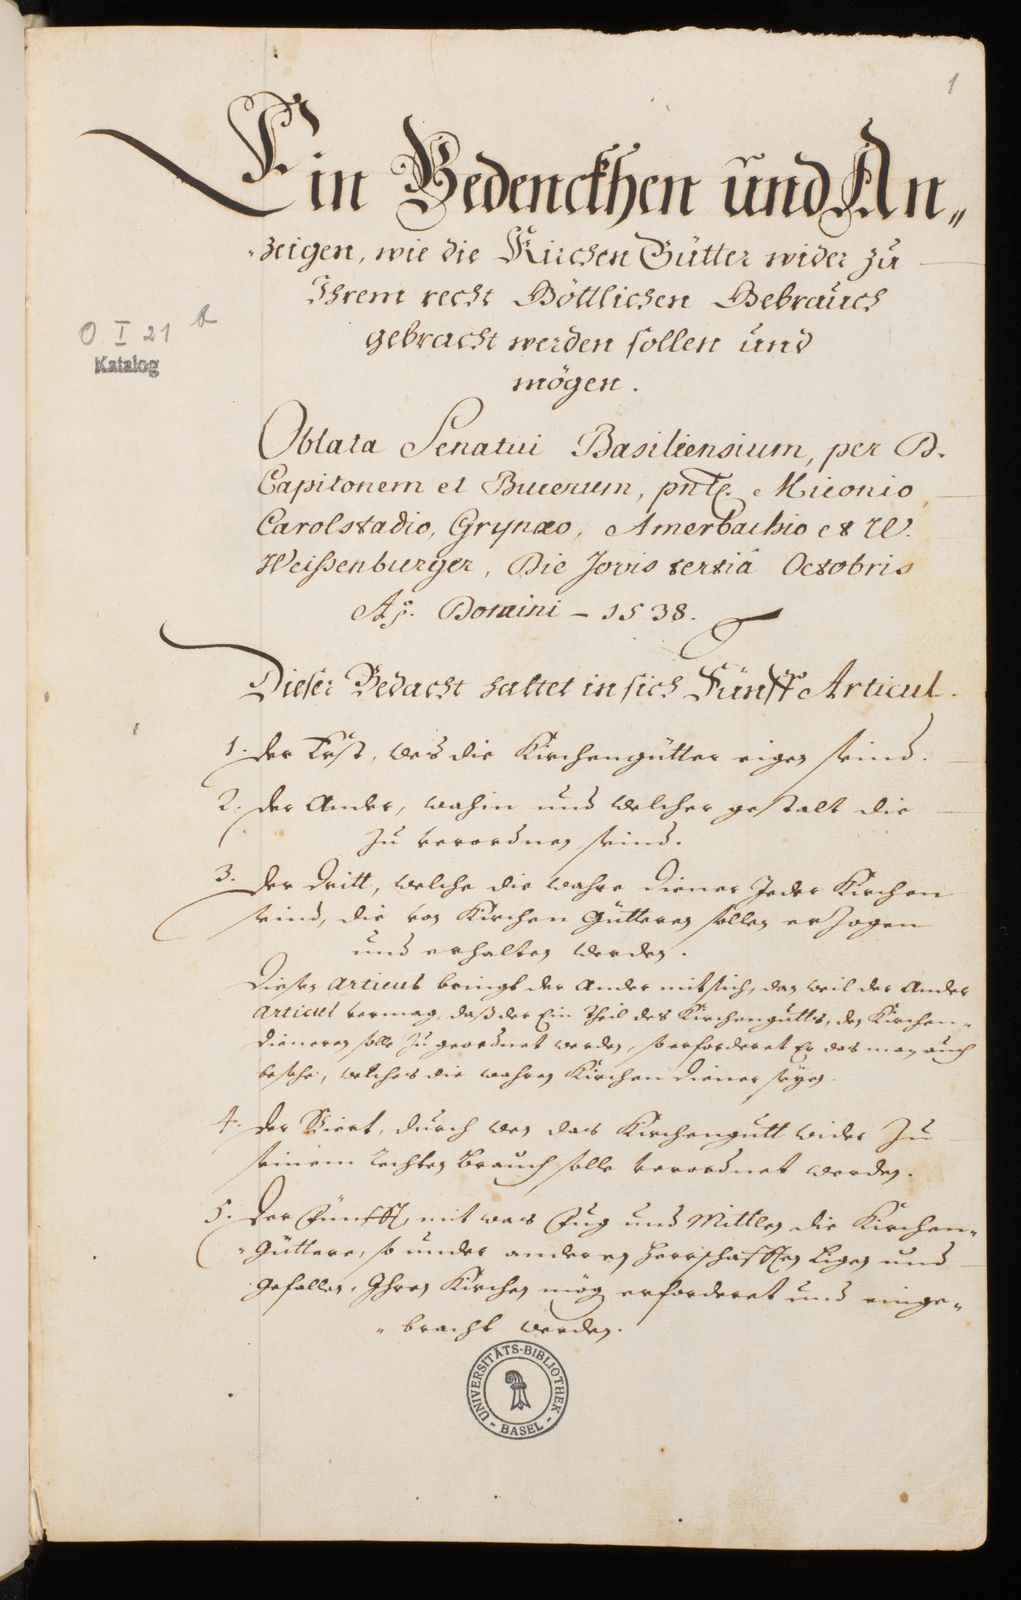 1
Ein Bedenckhen und An„
„zeigen, wie die Kirchen Gütter wider zu
Ihrem recht Göttlichen Gebrauch
gebracht werden sollen und
mögen.
O I 21 b
Katalog
Oblata Senatui Basiliensium, per D.
Capitonem et Bucerum, pnte. Miconio,
Carolstadio, Grynæo, Amerbachio et W.
Weißenburger, Die Jovis tertiâ Octobris
Ao. Domini – 1538.
Dieser Bedacht haltet in sich Fünff Articul.
1. Der Erst, wes die Kirchengütter eigen seind.
2. Der Ander, wahin und welcher gestalt die
zu verordnen seind.
3. Der Dritt, welche die wahre Diener Jeder Kirchen
seind, die von Kirchen Gütteren sollen erzogen
und erhalten werden.
Diesen Articul bringt der Ander mit sich, dan weil der Ander
Articul vermag, daß der Ein Theil des Kirchengutts, den Kirchen„
Dieneren solle zu geordnet werden, so erforderet Er das man auch
besehe, welches die wahren Kirchen Diener seyen.
4. Der Viert, durch wen das Kirchengutt wider zu
seinem rechten Brauch solle verordnet werden.
5. Der Fünfft, mit was Fug und Mittlen die Kirchen„
„Güttere, so under anderen Herrschafften ligen und
gefallen, Ihren Kirchen mög erforderet und einge„
„bracht werden.
UNIVERSITÄTS-BIBLIOTHEK
- BASEL -